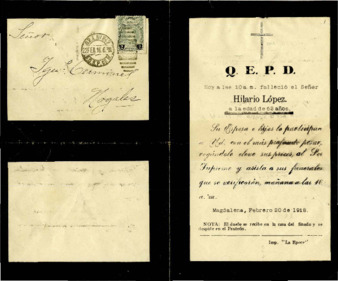 Señor
Ign. E.
Nogales
Q. E. P. D.
Hoy a las 10 a. m. falleció el Señor
Hilario López.
a la edad de 52 años.
Su Esposa e hijos lo participan
a Ud. con el más profundo pesar,
rogándole eleve sus preces al Ser
Supremo y asista a sus funerales
que se verificarán, mañana a las 10
a. m.
Magdalena, Febrero 20 de 1918.
NOTA: El duelo se recibe en la casa del finado y se
despide en el Panteón.
Imp. "La Epoca"